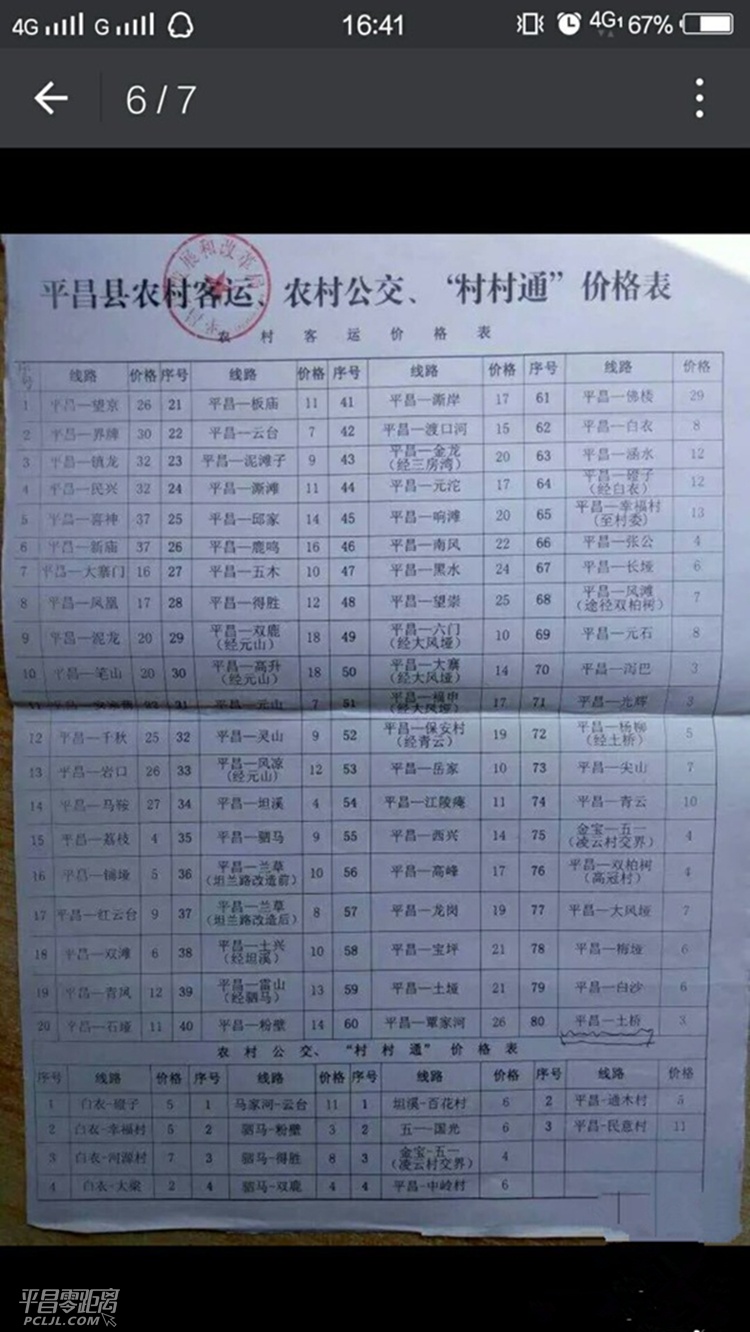 4G G 16:41 4G1 67%
6 / 7
展和改革局
平昌县农村客运、农村公交、“村村通”价格表
农 村 客 运 价 格 表
序号 线路 价格 序号 线路 价格 序号 线路 价格 序号 线路 价格
1 平昌—望京 26 21 平昌—板庙 11 41 平昌—澌岸 17 61 平昌—佛楼 29
2 平昌—界牌 30 22 平昌—云台 7 42 平昌—渡口河 15 62 平昌—白衣 8
3 平昌—镇龙 32 23 平昌—泥滩子 9 43 平昌—金龙(经三房湾) 20 63 平昌—涵水 12
4 平昌—民兴 32 24 平昌—澌滩 11 44 平昌—元沱 17 64 平昌—磴子(经白衣) 12
5 平昌—喜神 37 25 平昌—邱家 14 45 平昌—响滩 20 65 平昌—幸福村(至村委) 13
6 平昌—新庙 37 26 平昌—鹿鸣 16 46 平昌—南风 22 66 平昌—张公 4
7 平昌—大寨门 16 27 平昌—五木 10 47 平昌—黑水 24 67 平昌—长垭 6
8 平昌—凤凰 17 28 平昌—得胜 12 48 平昌—望崇 25 68 平昌—风滩(途径双柏树) 7
9 平昌—泥龙 20 29 平昌—双鹿(经元山) 18 49 平昌—六门(经大风垭) 10 69 平昌—元石 8
10 平昌—笔山 20 30 平昌—高升(经元山) 18 50 平昌—大寨(经大风垭) 14 70 平昌—泻巴 3
11 31 平昌—元山 7 51 平昌—福申(经大风垭) 17 71 平昌—光辉 3
12 平昌—千秋 25 32 平昌—灵山 9 52 平昌—保安村(经青云) 19 72 平昌—杨柳(经土桥) 5
13 平昌—岩口 26 33 平昌—风凉(经元山) 12 53 平昌—岳家 10 73 平昌—尖山 7
14 平昌—马鞍 27 34 平昌—坦溪 4 54 平昌—江陵庵 11 74 平昌—青云 10
15 平昌—荔枝 4 35 平昌—驷马 9 55 平昌—西兴 14 75 金宝—五一(凌云村交界) 4
16 平昌—锦垭 5 36 平昌—兰草(坦兰路改造前) 10 56 平昌—高峰 17 76 平昌—双柏树(高冠村) 4
17 平昌—红云台 9 37 平昌—兰草(坦兰路改造后) 8 57 平昌—龙岗 19 77 平昌—大风垭 7
18 平昌—双滩 6 38 平昌—土兴(经坦溪) 10 58 平昌—宝坪 21 78 平昌—梅垭 6
19 平昌—青凤 12 39 平昌—雷山(经驷马) 13 59 平昌—土垭 21 79 平昌—白沙 6
20 平昌—石垭 11 40 平昌—粉壁 14 60 平昌—覃家河 26 80 平昌—土桥 3
农 村 公 交、“村 村 通”价 格 表
序号 线路 价格 序号 线路 价格 序号 线路 价格 序号 线路 价格
1 白衣-磴子 5 1 马家河-云台 11 1 坦溪-百花村 6 2 平昌-通木村 5
2 白衣-幸福村 5 2 驷马-粉壁 3 2 五一-国光 6 3 平昌-民意村 11
3 白衣-河源村 7 3 驷马-得胜 8 3 金宝-五一(凌云村交界) 4
4 白衣-太梁 2 4 驷马-双鹿 4 4 平昌-中岭村 6
平昌零距离
PCLJL.COM